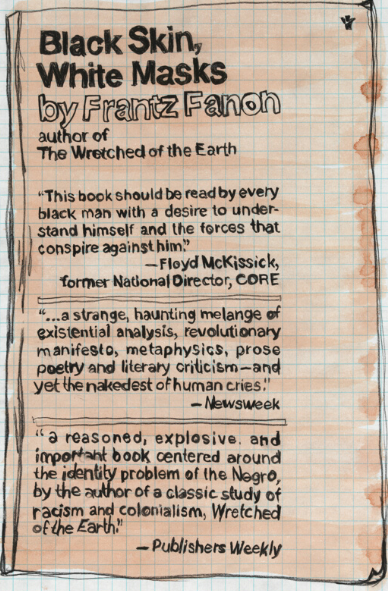 Black Skin,
White Masks
by Frantz Fanon
author of
The Wretched of the Earth
"This book should be read by every
black man with a desire to under-
stand himself and the forces that
conspire against him."
—Floyd McKissick,
former National Director, CORE
"...a strange, haunting melange of
existential analysis, revolutionary
manifesto, metaphysics, prose
poetry and literary criticism—and
yet the nakedest of human cries."
— Newsweek
"a reasoned, explosive. and
important book centered around
the identity problem of the Negro,
by the author of a classic study of
racism and colonialism, Wretched
of the Earth."
—Publishers Weekly